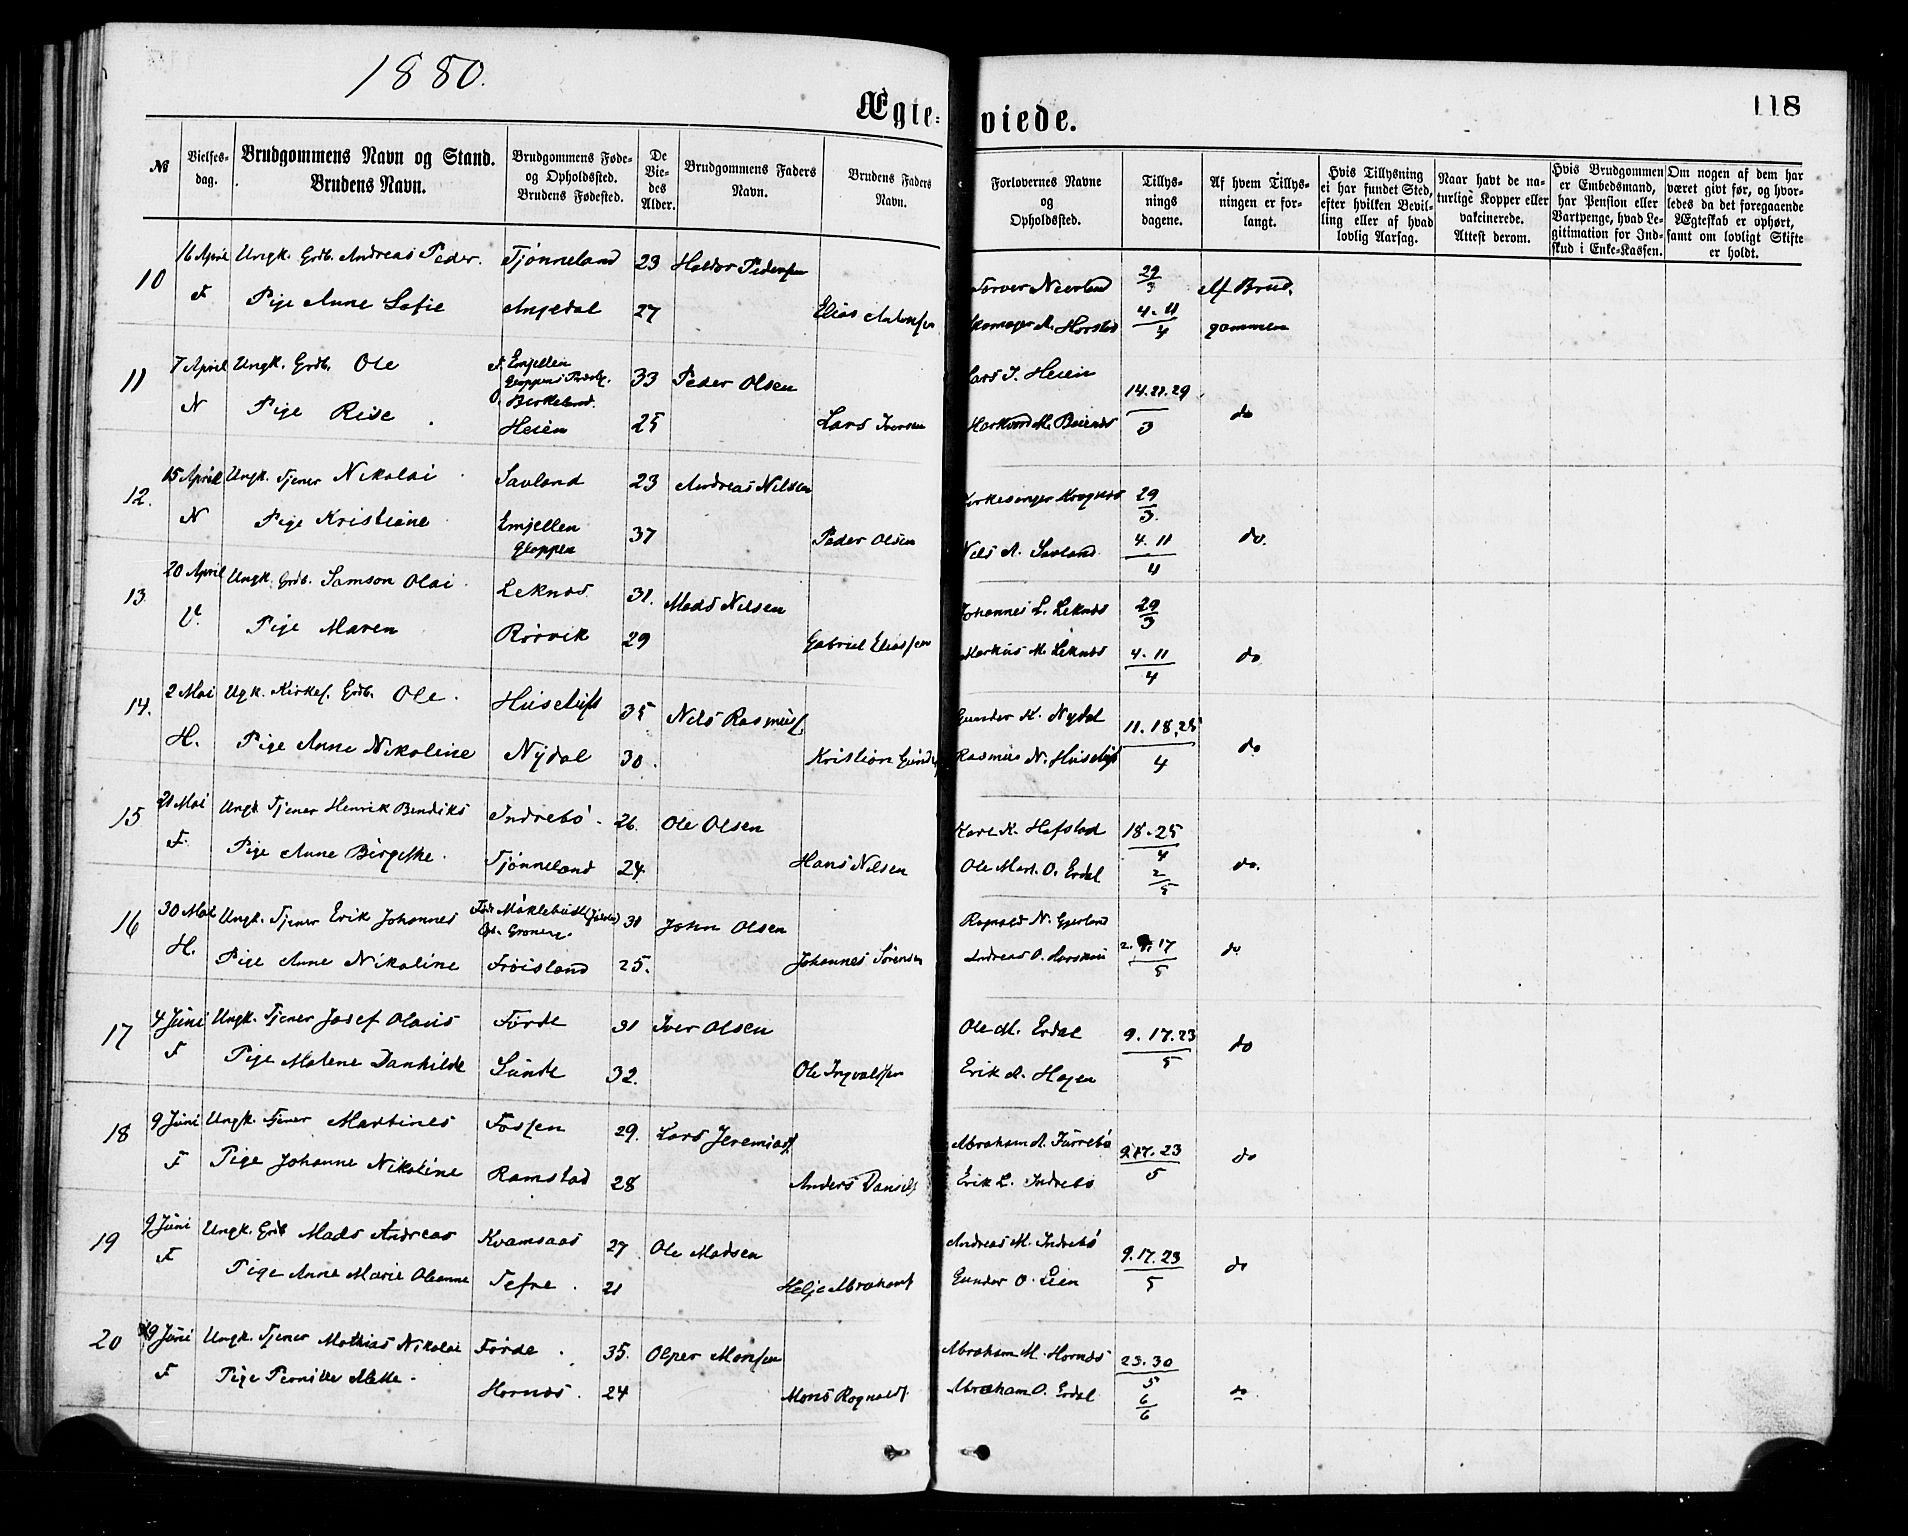 1880.
Ægte-
viede.
118
№
Vielses-
dag.
Brudgommens Navn og Stand.
Brudens Navn.
Brudgommens Føde-
og Opholdssted.
Brudens Fødested.
De
Vie-
des
Alder.
Brudgommens Faders
Navn.
Brudens Faders
Navn.
Forlovernes Navne
og
Opholdssted.
Tillys-
nings
dagene.
Af hvem Tillys-
ningen er for-
langt.
Hvis Tillysning
ei har fundet Sted,
efter hvilken Bevil-
ling eller af hvad
lovlig Aarsag.
Naar havt de na-
turlige Kopper eller
vakcinerede.
Attest derom.
Hvis Brudgommen
er Embedsmand,
har Pension eller
Vartpenge, hvad Le-
gitimation for Ind-
skud i Enke-Kassen.
Om nogen af dem har
været givt før, og hvor-
ledes da det foregaaende
Ægteskab er ophørt,
samt om lovligt Skifte
er holdt.
10 16 April Ungk. Grdb. Andreas Peder. Tjønneland 23 Haldor Pedersen Neerland 29/3 Af Brud-
F Pige Anne Sofie Angedal 27 Elias Antonsen 4. 11/4 gommen
11 7 April Ungk. Grdb. Ole F. Emjellen
O. Birkeland. 33 Peder Olsen Lars J. Heien 14. 21. 29
N Pige Heien 25 Lars Iversen 3 do
12. 15 April Ungk. Tjener Nikolai Savland 23 Andreas Nilsen Kirkesanger 29/3
N Pige Kristiane Emjellen
Gloppen 37 Peder Olsen Nils A. Savland 4. 11/4 do.
13 20 April Ungk. Grdb. Samson Olai Leknes 31. Mads Nilsen Johannes L. Leknes 29/3
V. Pige Maren Rørvik 29 Gabriel Eliassen Markus M. Leknes 4. 11/4 do
14. 2 Mai Ugk. Kirkes. Grdb. Ole. 35 Nils Rasmuss. Gunder K. Nydal 11. 18. 25
H. Pige Anne Nikoline Nydal 30. Kristian Rasmus N. 4 do
15 21 Mai Ungk. Tjener Henrik Bendiks Indrebø. 26. Ole Olsen Karl K. Hafstad 18. 25/4
F. Pige Anne Birgithe. Tjønneland 24. Hans Nilsen Ole Mart. O. Erdal 2/5 do.
16 30 Mai Ungk. Tjener Erik Johannes 31 John Olsen Ragnald N.
H. Pige Anne Nikoline Frøisland 25. Johannes Sørensen Andreas O. 2. 9. 17/5 do
17 4 Juni Ungk. Tjener Josef Olaus Førde 31 Iver Olsen Ole M. Erdal 9. 17. 23
F Pige Malene Danhilde Sunde 32. Ole Ingvaldsen Erik A. Hagen 5 do
18 9 Juni Ungk. Tjener Martines Fossen 29. Lars Jeremiass. Abraham A. 9. 17. 23
F Pige Johanne Nikoline Ramstad 28 Anders Daniels. Erik L. Indrebø 5 do
19 9 Juni Ungk. Grdb Mads Andreas Kvamsaas 27 Ole Madsen Andreas M. Indrebø 9. 17. 23
F Pige Anne Marie Oleanne Tefre. 21 Helje Abrahams. Gunder O. Lien 5 do
20 9 Juni Ungk. Tjener Mathias Nikolai Førde. 35. Monsen Abraham M. Hornes 23. 30/5
F Pige Pernille Mette. Hornes. 24 Mons Ragnalds. Abraham O. Erdal 6/6 do